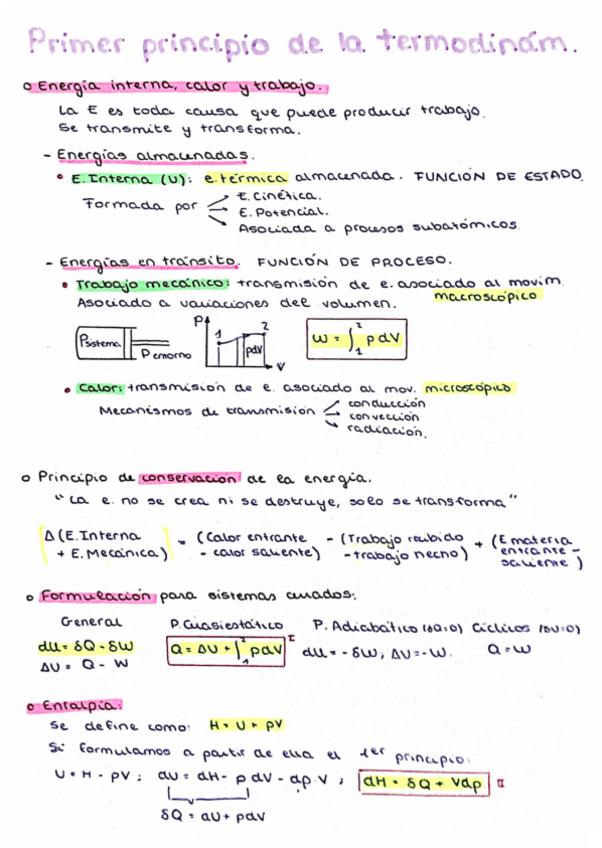 Primer principio de la termodinám.
o Energía interna, calor y trabajo.
La E es toda causa que puede producir trabajo.
Se transmite y transforma.
- Energías almacenadas.
• E. Interna (U): e. térmica almacenada. FUNCIÓN DE ESTADO.
Formada por
E. Cinética.
E. Potencial.
Asociada a procesos subatómicos.
- Energías en tránsito. FUNCIÓN DE PROCESO.
• Trabajo mecánico: transmisión de e. asociado al movim.
macroscópico
Asociado a variaciones del volumen.
Psistema
P entorno
P
1
2
pdV
V
W = ∫₁² p dV
• Calor: transmisión de e. asociado al mov. microscópico
Mecanismos de transmisión
conducción
convección
radiación.
o Principio de conservación de la energía.
"La e. no se crea ni se destruye, solo se transforma"
Δ (E. Interna + E. Mecánica) = (Calor entrante - calor saliente) - (Trabajo recibido - trabajo hecho) + (E materia entrante - saliente)
o Formulación para sistemas cerrados:
General
P. Cuasiestático
P. Adiabático (δQ=0)
Cíclicos (ΔU=0)
dU = δQ - δW
ΔU = Q - W
Q = ΔU + ∫₁² pdV I
dU = -δW; ΔU = -W.
Q = W
o Entalpía:
Se define como: H = U + pV
Si formulamos a partir de ella el 1er principio:
U = H - pV; dU = dH - p dV - dp V; dH = δQ + Vdp II
δQ = dU + pdV